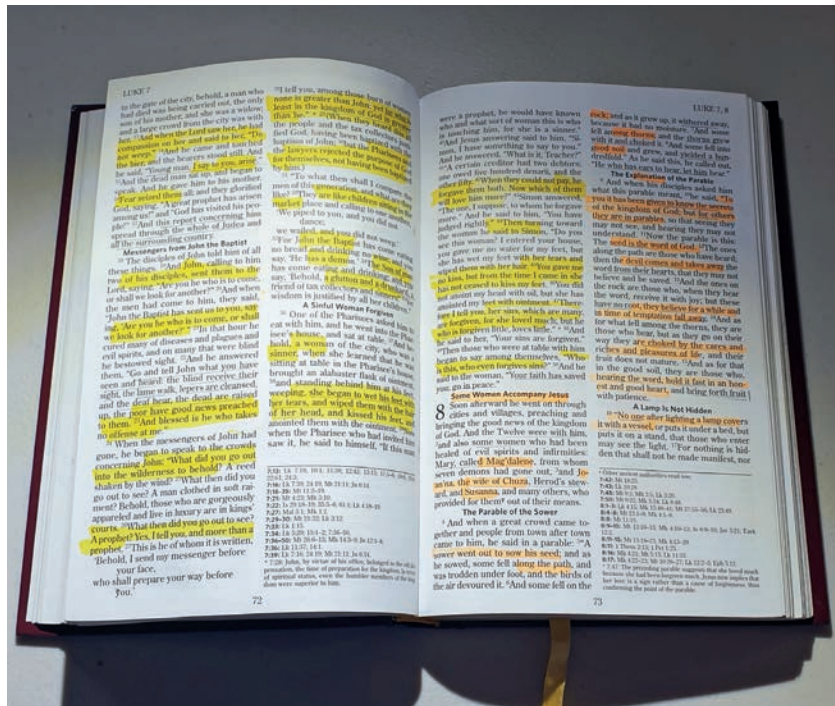 LUKE 7
to the gate of the city, behold, a man who
had died was being carried out, the only
son of his mother, and she was a widow;
and a large crowd from the city was with
her. ¹³And when the Lord saw her, he had
compassion on her and said to her, "Do
not weep." ¹⁴And he came and touched
the bier, and the bearers stood still. And
he said, "Young man, I say to you, arise."
¹⁵And the dead man sat up, and began to
speak. And he gave him to his mother.
¹⁶Fear seized them all; and they glorified
God, saying, "A great prophet has arisen
among us!" and "God has visited his peo-
ple!" ¹⁷And this report concerning him
spread through the whole of Judea and
all the surrounding country.
Messengers from John the Baptist
¹⁸The disciples of John told him of all
these things. ¹⁹And John, calling to him
two of his disciples, sent them to the
Lord, saying, "Are you he who is to come,
or shall we look for another?" ²⁰And when
the men had come to him, they said,
"John the Baptist has sent us to you, say-
ing, 'Are you he who is to come, or shall
we look for another?'" ²¹In that hour he
cured many of diseases and plagues and
evil spirits, and on many that were blind
he bestowed sight. ²²And he answered
them, "Go and tell John what you have
seen and heard: the blind receive their
sight, the lame walk, lepers are cleansed,
and the deaf hear, the dead are raised
up, the poor have good news preached
to them. ²³And blessed is he who takes
no offense at me."
²⁴When the messengers of John had
gone, he began to speak to the crowds
concerning John: "What did you go out
into the wilderness to behold? A reed
shaken by the wind? ²⁵What then did you
go out to see? A man clothed in soft rai-
ment? Behold, those who are gorgeously
appareled and live in luxury are in kings'
courts. ²⁶What then did you go out to see?
A prophet? Yes, I tell you, and more than a
prophet. ²⁷This is he of whom it is written,
'Behold, I send my messenger before
your face,
who shall prepare your way before
you.'
²⁸I tell you, among those born of women
none is greater than John; yet he who is
least in the kingdom of God is greater
than he." ²⁹(When they heard this all
the people and the tax collectors justi-
fied God, having been baptized with the
baptism of John; ³⁰but the Pharisees and
the lawyers rejected the purpose of God
for themselves, not having been baptized
by him.)
³¹"To what then shall I compare the
men of this generation, and what are they
like? ³²They are like children sitting in the
market place and calling to one another,
'We piped to you, and you did not
dance;
we wailed, and you did not weep.'
³³For John the Baptist has come eating
no bread and drinking no wine; and you
say, 'He has a demon.' ³⁴The Son of man
has come eating and drinking; and you
say, 'Behold, a glutton and a drunkard, a
friend of tax collectors and sinners!' ³⁵Yet
wisdom is justified by all her children."
A Sinful Woman Forgiven
³⁶One of the Pharisees asked him to
eat with him, and he went into the Phar-
isee's house, and sat at table. ³⁷And be-
hold, a woman of the city, who was a
sinner, when she learned that he was
sitting at table in the Pharisee's house,
brought an alabaster flask of ointment,
³⁸and standing behind him at his feet,
weeping, she began to wet his feet with
her tears, and wiped them with the hair
of her head, and kissed his feet, and
anointed them with the ointment. ³⁹Now
when the Pharisee who had invited him
saw it, he said to himself, "If this man
72
LUKE 7, 8
were a prophet, he would have known
who and what sort of woman this is who
is touching him, for she is a sinner."
⁴⁰And Jesus answering said to him, "Si-
mon, I have something to say to you."
And he answered, "What is it, Teacher?"
⁴¹"A certain creditor had two debtors;
one owed five hundred denarii, and the
other fifty. ⁴²When they could not pay, he
forgave them both. Now which of them
will love him more?" ⁴³Simon answered,
"The one, I suppose, to whom he forgave
more." And he said to him, "You have
judged rightly." ⁴⁴Then turning toward
the woman he said to Simon, "Do you
see this woman? I entered your house,
you gave me no water for my feet, but
she has wet my feet with her tears and
wiped them with her hair. ⁴⁵You gave me
no kiss, but from the time I came in she
has not ceased to kiss my feet. ⁴⁶You did
not anoint my head with oil, but she has
anointed my feet with ointment. ⁴⁷There-
fore I tell you, her sins, which are many,
are forgiven, for she loved much; but he
who is forgiven little, loves little." ⁴⁸And
he said to her, "Your sins are forgiven."
⁴⁹Then those who were at table with him
began to say among themselves, "Who
is this, who even forgives sins?" ⁵⁰And he
said to the woman, "Your faith has saved
you; go in peace."
Some Women Accompany Jesus
8 Soon afterward he went on through
cities and villages, preaching and
bringing the good news of the kingdom
of God. And the Twelve were with him,
²and also some women who had been
healed of evil spirits and infirmities:
Mary, called Mag'dalene, from whom
seven demons had gone out, ³and Jo-
an'na, the wife of Chuza, Herod's stew-
ard, and Susanna, and many others, who
provided for them out of their means.
The Parable of the Sower
⁴And when a great crowd came to-
gether and people from town after town
came to him, he said in a parable: ⁵"A
sower went out to sow his seed; and as
he sowed, some fell along the path, and
was trodden under foot, and the birds of
the air devoured it. ⁶And some fell on the
rock; and as it grew up, it withered away,
because it had no moisture. ⁷And some
fell among thorns; and the thorns grew
with it and choked it. ⁸And some fell into
good soil and grew, and yielded a hun-
dredfold." As he said this, he called out,
"He who has ears to hear, let him hear."
The Explanation of the Parable
⁹And when his disciples asked him
what this parable meant, ¹⁰he said, "To
you it has been given to know the secrets
of the kingdom of God; but for others
they are in parables, so that seeing they
may not see, and hearing they may not
understand. ¹¹Now the parable is this:
The seed is the word of God. ¹²The ones
along the path are those who have heard;
then the devil comes and takes away the
word from their hearts, that they may not
believe and be saved. ¹³And the ones on
the rock are those who, when they hear
the word, receive it with joy; but these
have no root, they believe for a while and
in time of temptation fall away. ¹⁴And as
for what fell among the thorns, they are
those who hear, but as they go on their
way they are choked by the cares and
riches and pleasures of life, and their
fruit does not mature. ¹⁵And as for that
in the good soil, they are those who,
hearing the word, hold it fast in an hon-
est and good heart, and bring forth fruit
with patience.
A Lamp Is Not Hidden
¹⁶"No one after lighting a lamp covers
it with a vessel, or puts it under a bed, but
puts it on a stand, that those who enter
may see the light. ¹⁷For nothing is hid-
den that shall not be made manifest, nor
73